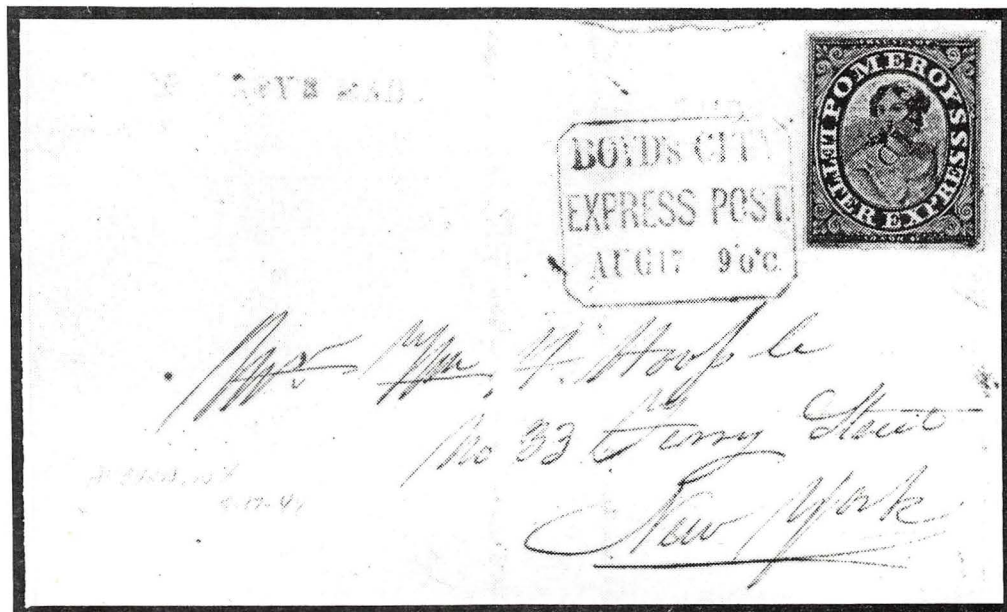 POMEROY'S
LETTER EXPRESS
BOYD'S CITY
EXPRESS POST.
AUG 17 9 o'c.
Mr. Wm. H. Hoople
No 33 Ferry Street
New York